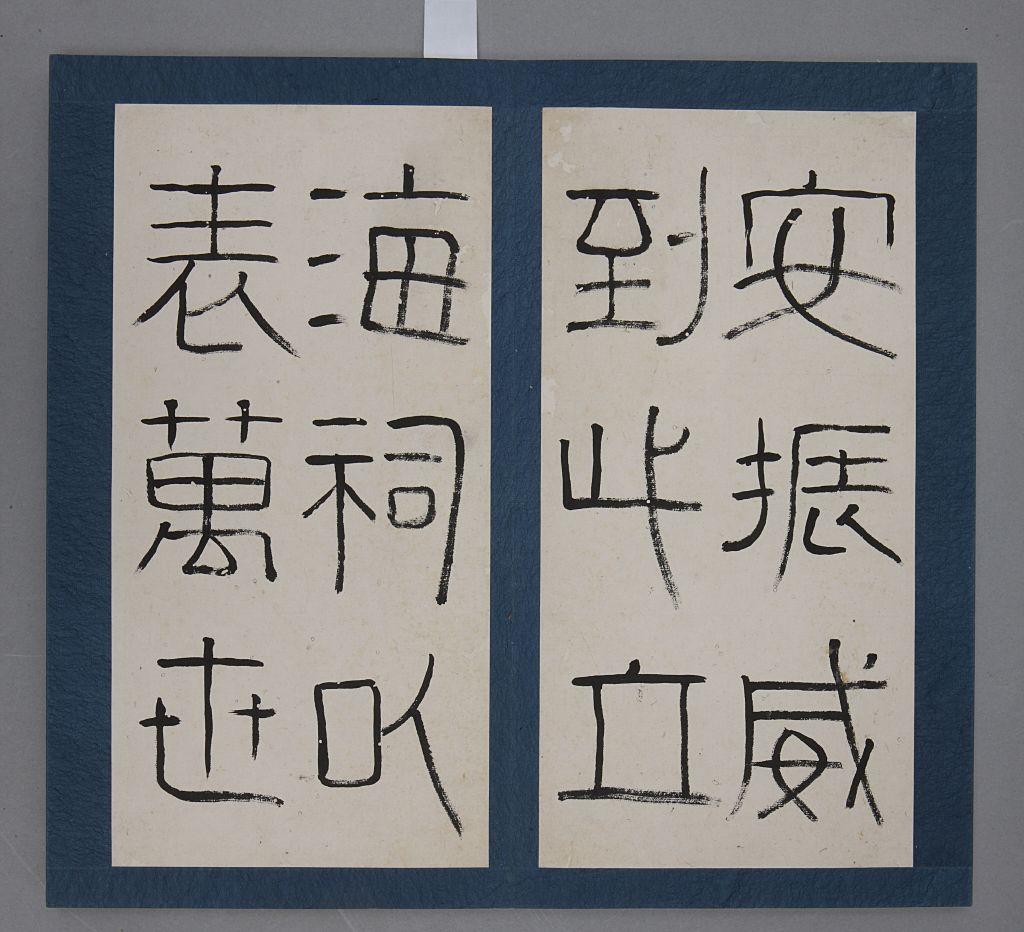 安振威
到此立
海祠以
表萬世